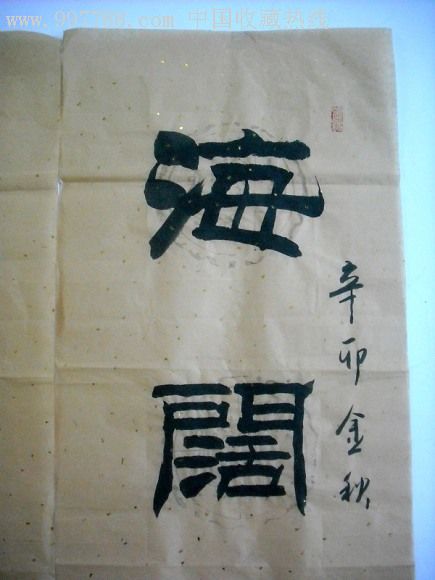 www.997788.com 中国收藏热线
辛卯金秋
海闊